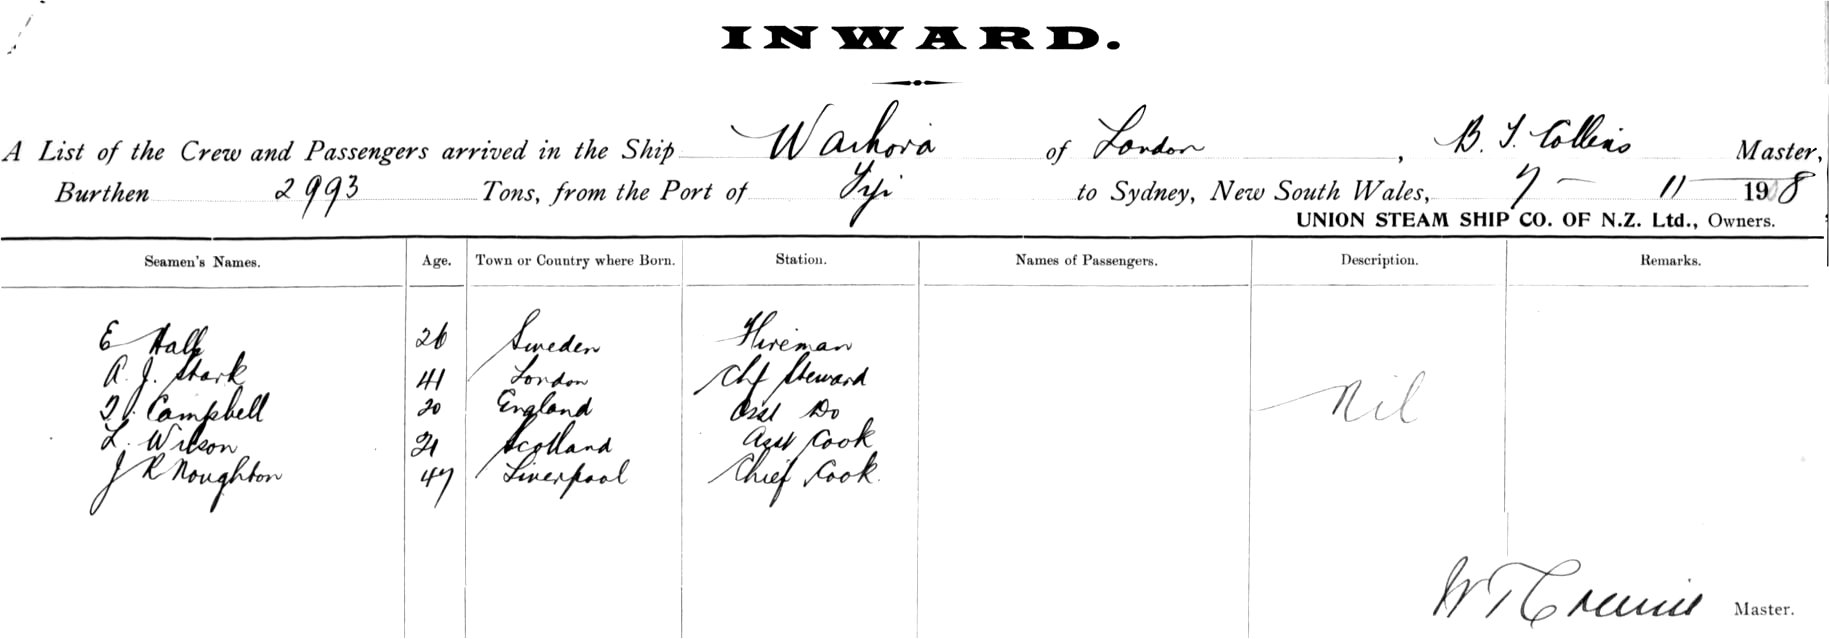 INWARD.
A List of the Crew and Passengers arrived in the Ship Waihora of London, B. J. Collins Master,
Burthen 2993 Tons, from the Port of Fiji to Sydney, New South Wales, 7 - 11 1908
UNION STEAM SHIP CO. OF N.Z. Ltd., Owners.
Seamen's Names. Age. Town or Country where Born. Station. Names of Passengers. Description. Remarks.
E Hall 26 Sweden Fireman
A. J. Stark 41 London Chf Steward
Campbell 20 England Asst Do
Nil
L. Wilson 21 Scotland Asst Cook
J R Noughton 47 Liverpool Chief Cook
Master.